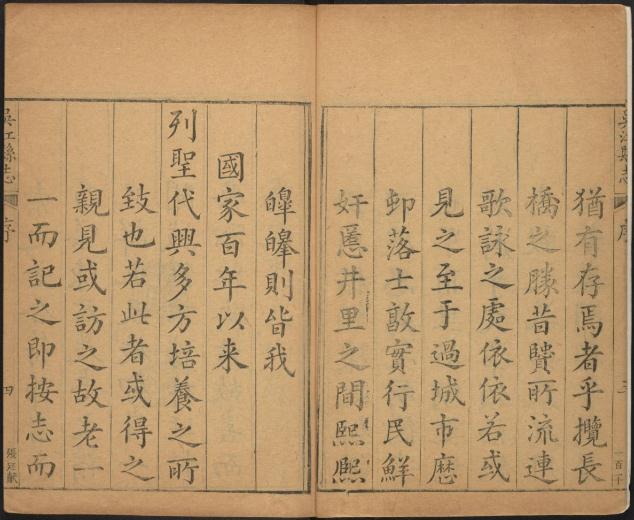 吳江縣志
序
三
一百二十
猶有存焉者乎攬長
橋之勝昔賢所流連
歌詠之處依依若或
見之至于過城市歷
邨落士敦實行民鮮
奸慝井里之間熙熙
皞皞則皆我
國家百年以来
列聖代興多方培養之所
致也若此者或得之
親見或訪之故老一
一而記之即按志而
吳江縣志
序
四
張廷獻